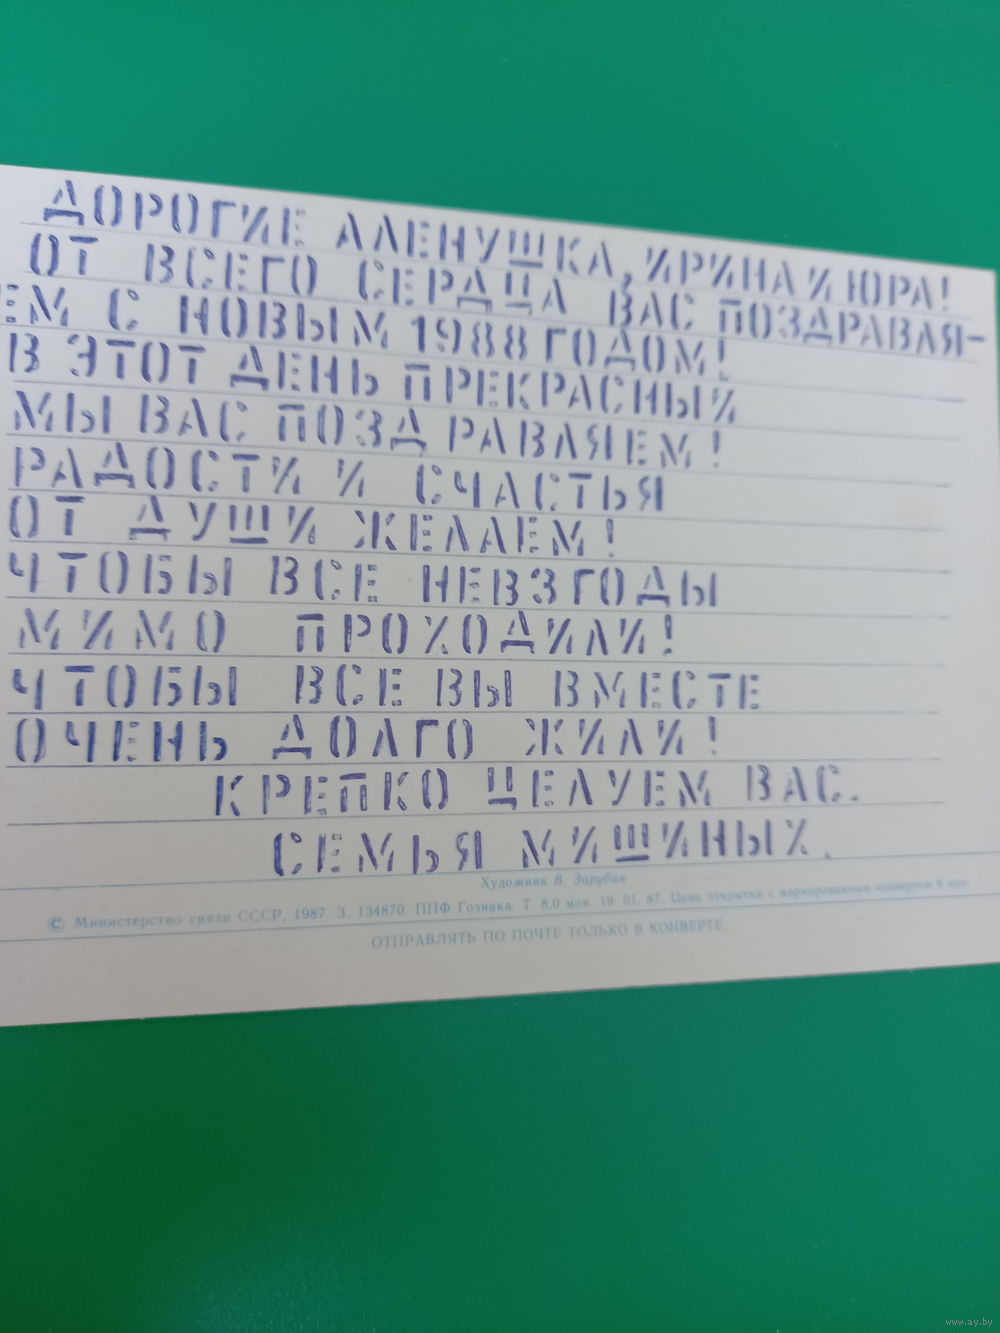 ДОРОГИЕ АЛЕНУШКА, ИРИНА И ЮРА!
ОТ ВСЕГО СЕРДЦА ВАС ПОЗДРАВЛЯ-
ЕМ С НОВЫМ 1988 ГОДОМ!
В ЭТОТ ДЕНЬ ПРЕКРАСНЫИ
МЫ ВАС ПОЗДРАВЛЯЕМ!
РАДОСТИ И СЧАСТЬЯ
ОТ ДУШИ ЖЕЛАЕМ!
ЧТОБЫ ВСЕ НЕВЗГОДЫ
МИМО ПРОХОДИЛИ!
ЧТОБЫ ВСЕ ВЫ ВМЕСТЕ
ОЧЕНЬ ДОЛГО ЖИЛИ!
КРЕПКО ЦЕЛУЕМ ВАС.
СЕМЬЯ МИШИНЫХ.
Художник В. Зарубин
© Министерство связи СССР, 1987. З. 134870. ППФ Гознака. Т. 8,0 млн. 19. 01. 87. Цена открытки с маркированным конвертом 8 коп.
ОТПРАВЛЯТЬ ПО ПОЧТЕ ТОЛЬКО В КОНВЕРТЕ.
www.ay.by